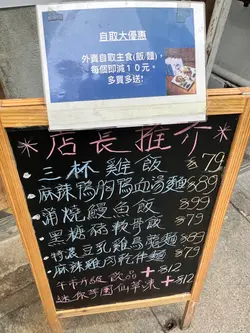 自取大優惠
外賣自取主食(飯/麵),
每個即減10元。
多買多送!
*店長推介*
三杯雞飯 $79
麻辣鴨胸鴨血湯麵 $89
蒲燒鰻魚飯 $99
黑糖豬軟骨飯 $79
特濃豆乳雞烏蔴麵 $89
麻辣雞肉乾伴麵 $79
+$12
迷你芋圓仙草凍 +$12